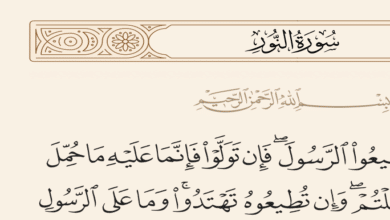 سُورَةُ النُّورِ
بِسْمِ اللَّهِ الرَّحْمَٰنِ الرَّحِيمِ
الرَّسُولَ ۖ فَإِن تَوَلَّوْا۟ فَإِنَّمَا عَلَيْهِ مَا حُمِّلَ
وَإِن تُطِيعُوهُ تَهْتَدُوا۟ ۚ وَمَا عَلَى الرَّسُولِ